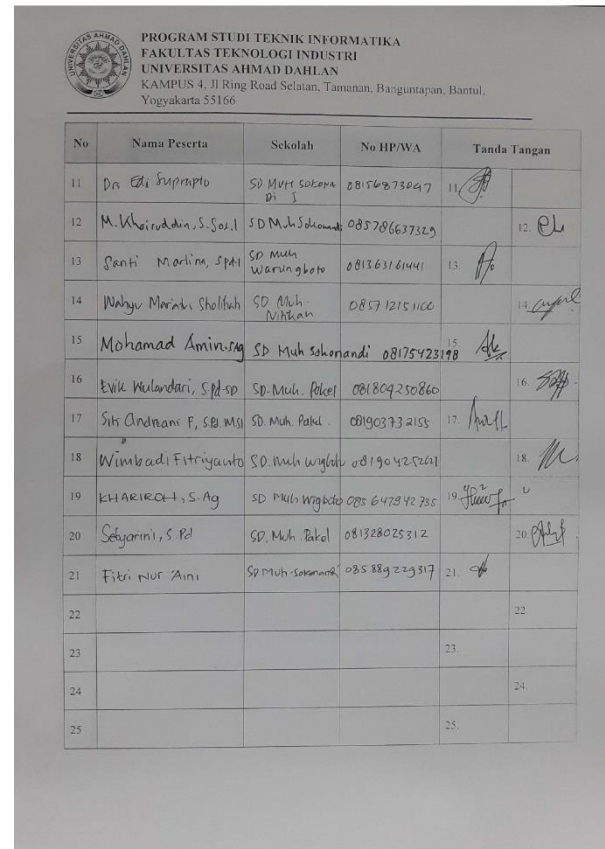 UNIVERSITAS AHMAD DAHLAN
PROGRAM STUDI TEKNIK INFORMATIKA
FAKULTAS TEKNOLOGI INDUSTRI
UNIVERSITAS AHMAD DAHLAN
KAMPUS 4, Jl Ring Road Selatan, Tamanan, Banguntapan, Bantul,
Yogyakarta 55166
No Nama Peserta Sekolah No HP/WA Tanda Tangan
11 Drs Edi Suprapto SD MUH SOKONA 08156873047 11.
12 M. Khoiruddin, S.Sos.I SD Muh Sokonandi 085786637329 12.
13 Santi Marlina, SPd.I SD Muh Warungboto 081363161441 13.
14 Wahyu Sholihah SD. Muh. Nitikan 085712151100 14.
15 Mohamad Amin.SAg SD Muh Sokonandi 08175423198 15.
16 Evik Wulandari, S.Pd-SD SD. Muh. Pakel 081804250860 16.
17 Siti Andriani F, S.Pd. MSI SD. Muh. Pakel. 081903732155 17.
18 Wimbadi Fitriyanto SD. Muh wrgbto 18.
19 KHARIROH, S.Ag SD Muh Wrgboto 085647942735 19.
20 Setyarini, S.Pd SD. Muh. Pakel 081328025312 20.
21 Fitri Nur 'Aini SD Muh-Sokonandi 085889229317 21.
22 22.
23 23.
24 24.
25 25.